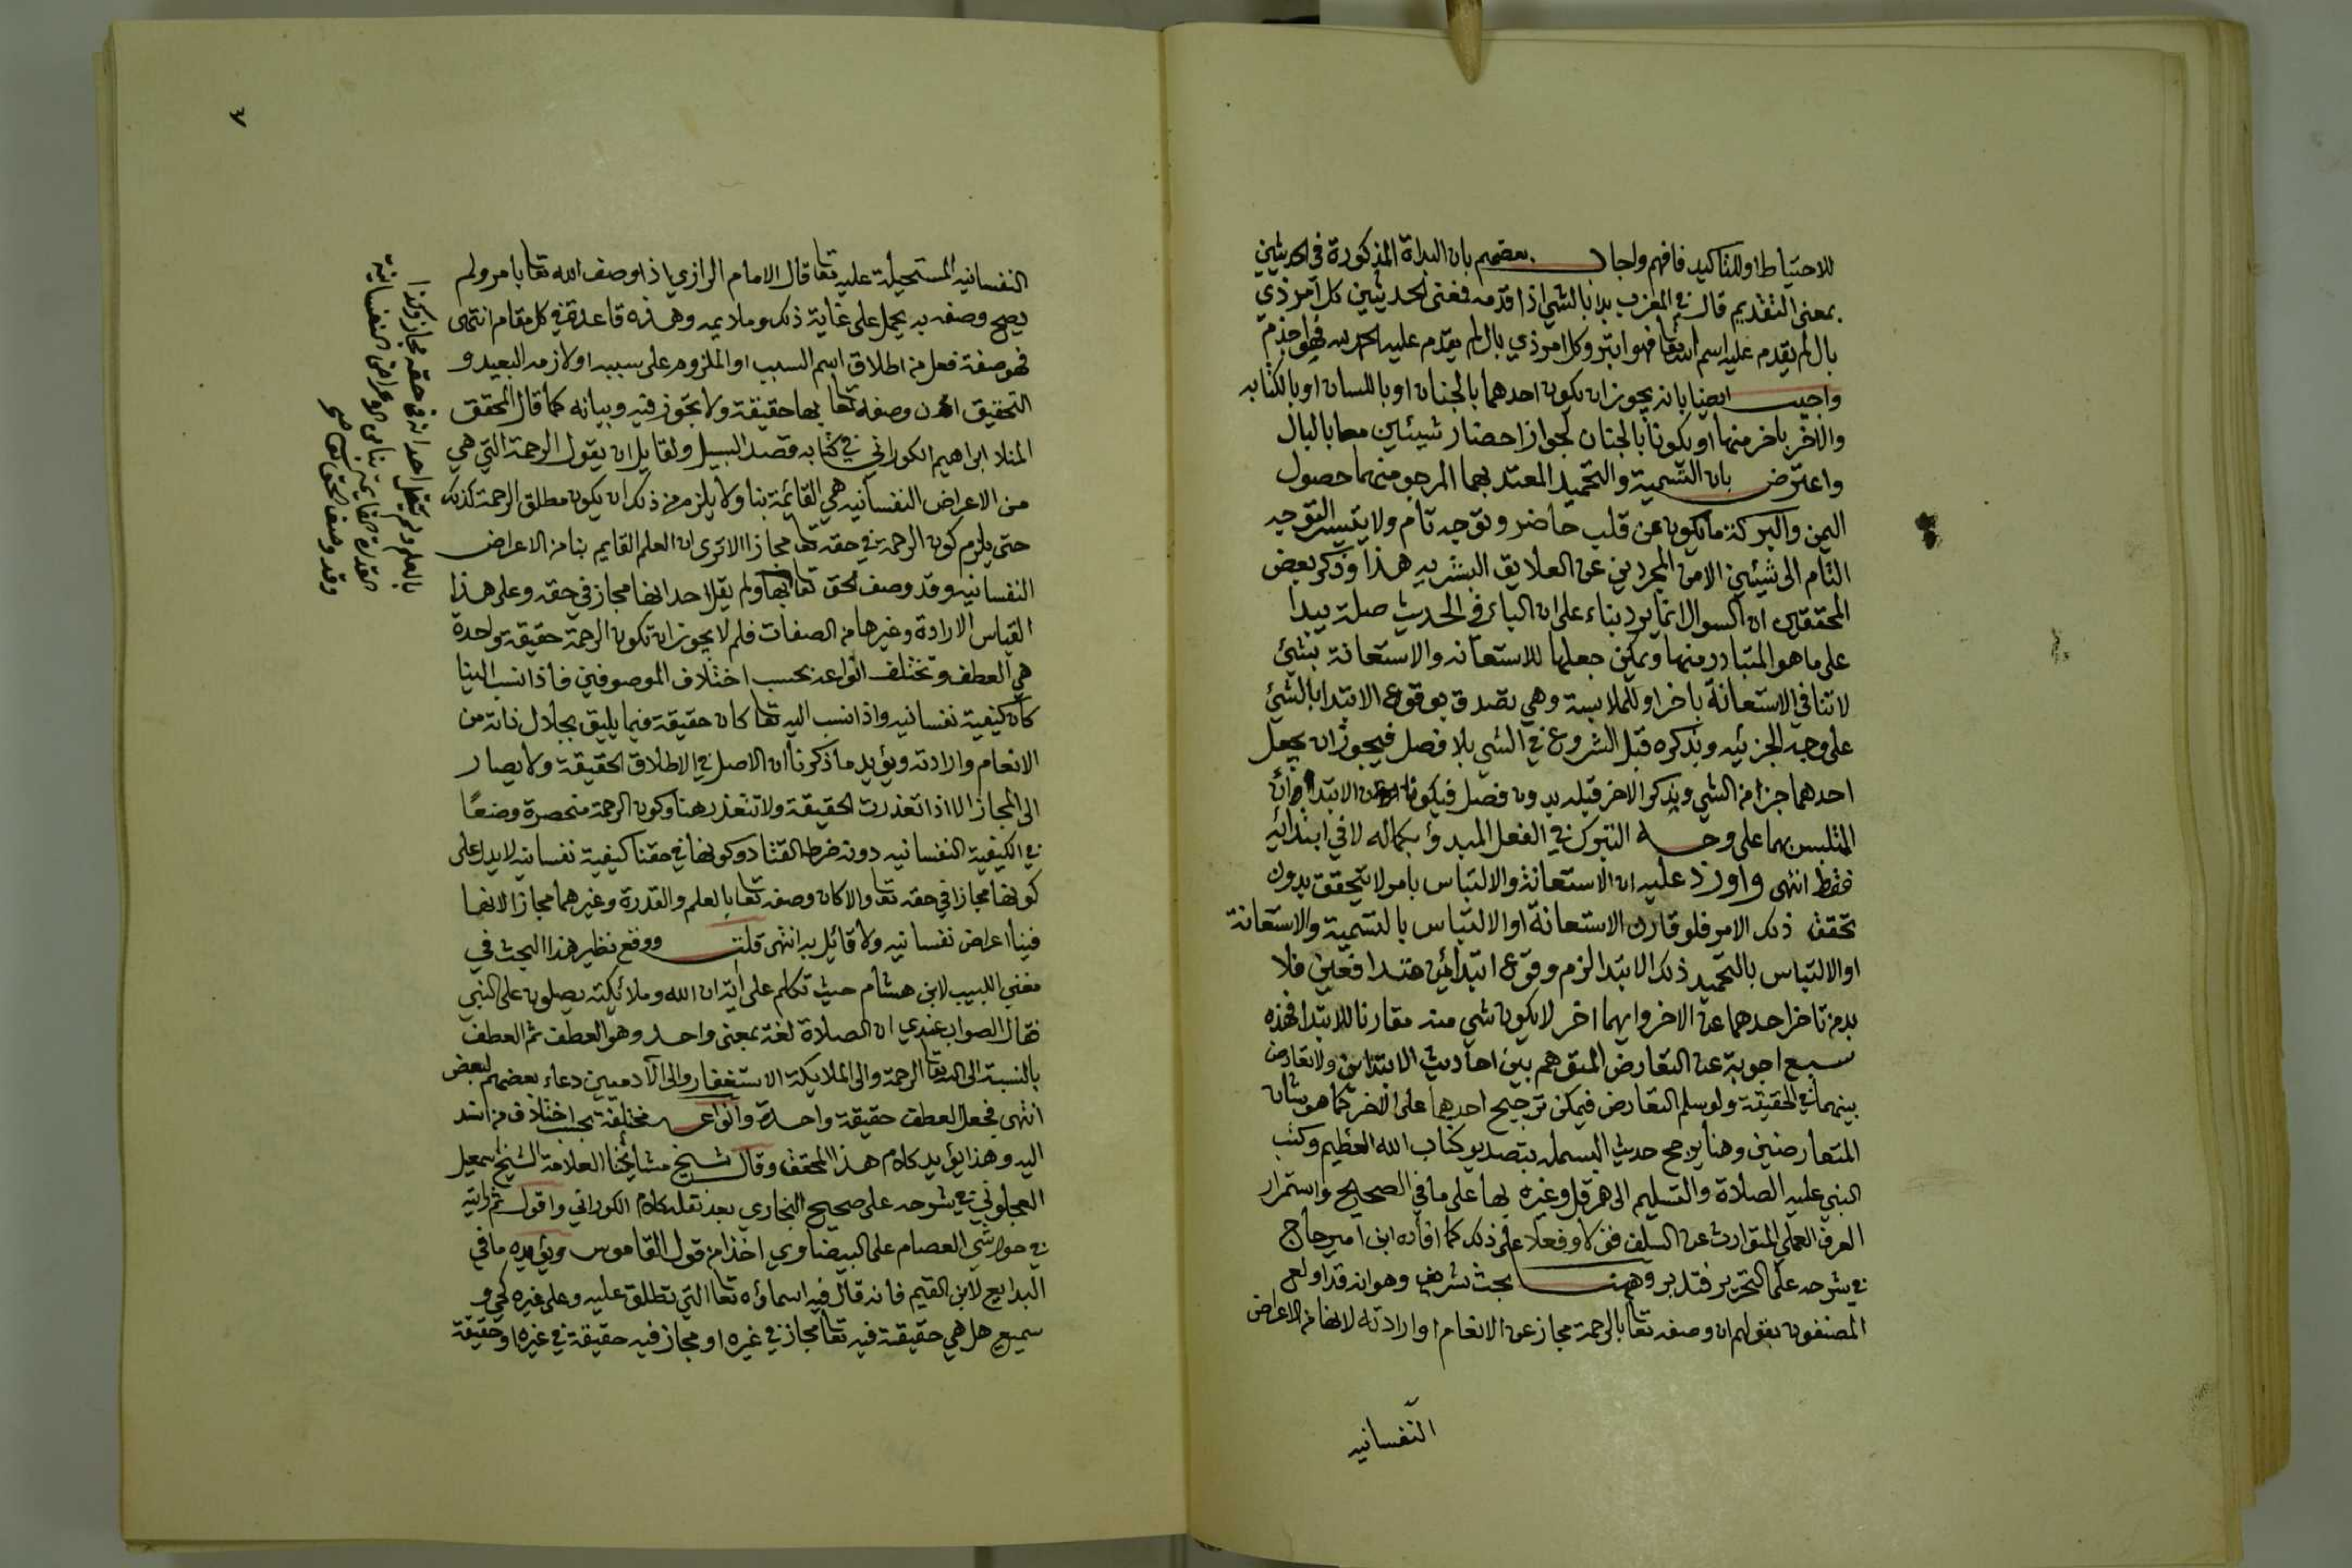 للاحتياط او للتاكيد فافهم واجاب بعضهم بان البداة المذكورة في الحديثين
بمعنى التقديم قال في المغرب بدا بالشي اذا قدمه فمعنى الحديثين كل امر ذي
بال لم يقدم عليه اسم الله تعا فهو ابتر وكل امر ذي بال لم يقدم عليه الحمد لله فهو اجذم
واجيب ايضا بانه يجوز ان يكون احدهما بالجنان او باللسان او بالكتابه
والاخر باخر منها او يكونا بالجنان لجواز احضار شيئين معا بالبال
واعترض بان التسمية والتحميد المعتد بهما المرجو منهما حصول
اليمن والبركة ما يكون عن قلب حاضر وتوجه تام ولا يتيسر التوجه
التام الى شيئين الا من المجردين عن العلايق البشريه هذا وذكر بعض
المحققين ان السوال انما يرد بناء على ان الباء في الحديث صلة يبدا
على ما هو المتبادر منها ويمكن جعلها للاستعانه والاستعانة بشئ
لا تنافي الاستعانة باخر او للملابسة وهي تصدق بوقوع الابتدا بالشئ
على وجه الجزئيه وبذكره قبل الشروع في الشي بلا فصل فيجوز ان يجعل
احدهما جزا من الشي ويذكر الاخر قبله بدون فصل فيكونان الابتدا ان
المتلبس بهما على وجه التبرك في الفعل المبدؤ بكماله لا في ابتدائه
فقط انتهى واورد عليه ان الاستعانة والالتباس بامر لا يتحقق بدون
تحقق ذلك الامر فلو قارن الاستعانة او الالتباس بالتسمية والاستعانة
او الالتباس بالتحميد ذلك الابتدا لزم وقوع ابتدائين فلا
بد من تاخر احدهما عن الاخر وايهما اخر لا يكون شي منه مقارنا للابتدا فهذه
سبع اجوبة عن التعارض المتوهم بين احاديث الابتدا ولا تعارض
بينهما في الحقيقة ولو سلم التعارض فيمكن ترجيح احدهما على الاخر كما هو شان
المتعارضين وهنا يرجح حديث البسمله بتصدير كتاب الله العظيم وكتب
النبي عليه الصلاة والتسليم الى هرقل وغيره بها على ما في الصحايح واستمرار
العرف العملي المتوارث عن السلف قولا وفعلا على ذلك كما افاده ابن امير حاج
في شرحه على التحرير فتدبر وههنا بحث شريف وهو انه قد اولع
المصنفون بقولهم ان وصفه تعا بالرحمة مجاز عن الانعام او ارادته لانها من الاعراض
النفسانيه
٣
النفسانيه المستحيلة عليه تعا قال الامام الرازي اذا وصف الله تعا بامر ولم
يصح وصفه به يحمل على غاية ذلك وملايمه وهذه قاعدة في كل مقام انتهى
فهو صفة فعل من اطلاق اسم السبب او الملزوم على سببه او لازمه البعيد و
التحقيق ان وصفه تعا بها حقيقة ولا تجوز فيه وبيانه كما قال المحقق
المنلا ابراهيم الكوراني في كتابه قصد السبيل ولقايل ان يقول الرحمة التي هي
من الاعراض النفسانيه هي القائمة بنا ولا يلزم من ذلك ان يكون مطلق الرحمة كذلك
حتى يلزم كون الرحمة في حقه تعا مجازا الا ترى ان العلم القايم بنا من الاعراض
النفسانيه وقد وصف الحق تعا بها ولم يقل احد انها مجاز في حقه وعلى هذا
القياس الارادة وغيرها من الصفات فلم لا يجوز ان تكون الرحمة حقيقة واحدة
هي العطف وتختلف انواعه بحسب اختلاف الموصوفين فاذا نسب الينا
كان كيفية نفسانيه واذا نسب اليه تعا كان حقيقة فيما يليق بجلال ذاته من
الانعام وارادته ويؤيد ما ذكرنا ان الاصل في الاطلاق الحقيقة ولا يصار
الى المجاز الا اذا تعذرت الحقيقة ولا تتعذر هنا وكون الرحمة منحصرة وضعًا
في الكيفية النفسانيه دونه خرط القتاد وكونها في حقنا كيفية نفسانيه لا يدل على
كونها مجازا في حقه تعا والا كان وصفه تعا بالعلم والقدرة وغيرهما مجازا لانها
فينا اعراض نفسانيه ولا قائل به انتهى قلت ووقع نظير هذا البحث في
مغني اللبيب لابن هشام حيث تكلم على آية ان الله وملائكته يصلون على النبي
فقال الصواب عندي ان الصلاة لغة بمعنى واحد وهو العطف ثم العطف
بالنسبة الى الله تعا الرحمة والى الملايكة الاستغفار والى الآدميين دعاء بعضهم لبعض
انتهى فجعل العطف حقيقة واحدة وانواعه مختلفة بحسب اختلاف من اسند
اليه وهذا يؤيد كلام هذا المحقق وقال شيخ مشايخنا العلامة الشيخ اسمعيل
العجلوني في شرحه على صحيح البخاري بعد نقله كلام الكوراني واقول ثم رايته
في حواشي العصام على البيضاوي اخذا من قول القاموس ويؤيده ما في
البدايع لابن القيم فانه قال فيه اسماؤه تعا التي تطلق عليه وعلى غيره كحي و
سميع هل هي حقيقة فيه تعا مجاز في غيره او مجاز فيه حقيقة في غيره او حقيقة
بالعلم ولم يقل احد انه في حقه مجاز وكذا
القدرة القايمة بنا من الاعراض النفسانية
وقد وصف الحق تعا صح